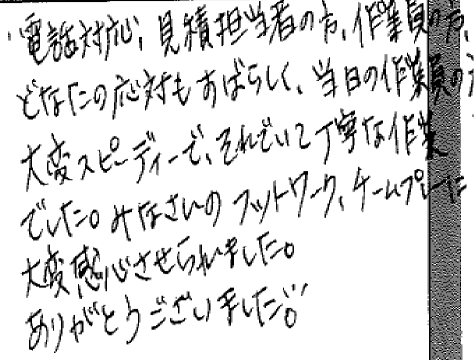 ・電話対応、見積担当者の方、作業員の方、
どなたの応対もすばらしく、当日の作業員の方
大変スピーディーで、それでいて丁寧な作業
でした。みなさいの フットワーク、チームプレーに
大変感心させられました。
ありがとうございました。